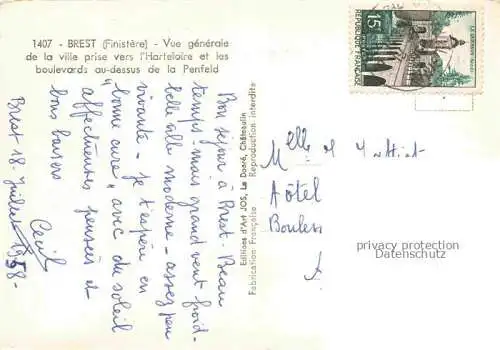 1407 - BREST (Finistère) - Vue générale
de la ville prise vers l'Harteloire et les
boulevards au-dessus de la Penfeld
Bon séjour à Brest. Beau
temps, mais grand vent froid -
belle ville moderne - assez peu
vivante - je t'espère en
"bonne cure" avec du soleil
affectueuses pensées et
bons baisers
Cecil
Brest 18 - Juillet 1958 -
Editions d'Art JOS, Le Doaré, Châteaulin
Fabrication Française Reproduction interdite
15F
REPUBLIQUE FRANÇAISE
Melle
Hôtel
privacy protection
Datenschutz